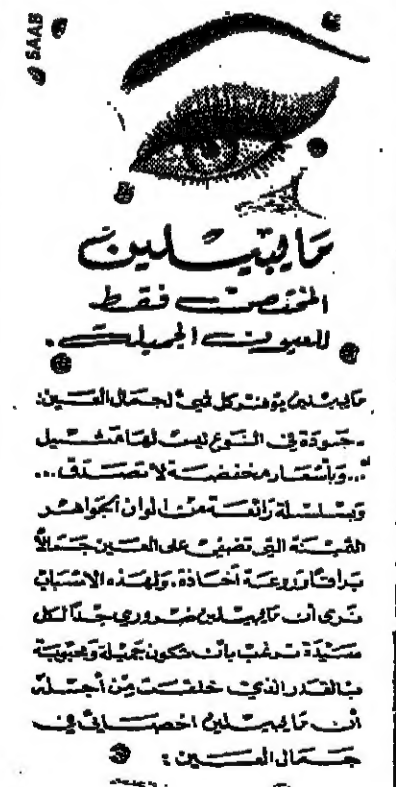 SAAB
مايبيلين
المختصة فقط
للعيون الجميلة.
مايبيلين يوفر كل شيء لجمال العين:
ـ جودة في النوع ليس لها مثيل
... وبأسعار مخفضة لا تصدق...
وبسلسلة رائعة من ألوان الجواهر
الثمينة التي تضفي على العين جمالاً
براقاً وروعة أخاذة. ولهذه الأسباب
نرى أن مايبيلين ضروري جداً لكل
سيدة ترغب بأن تكون جميلة ومحبوبة
بالقدر الذي خلقت من أجله
أن مايبيلين اخصائي في
جمال العين: